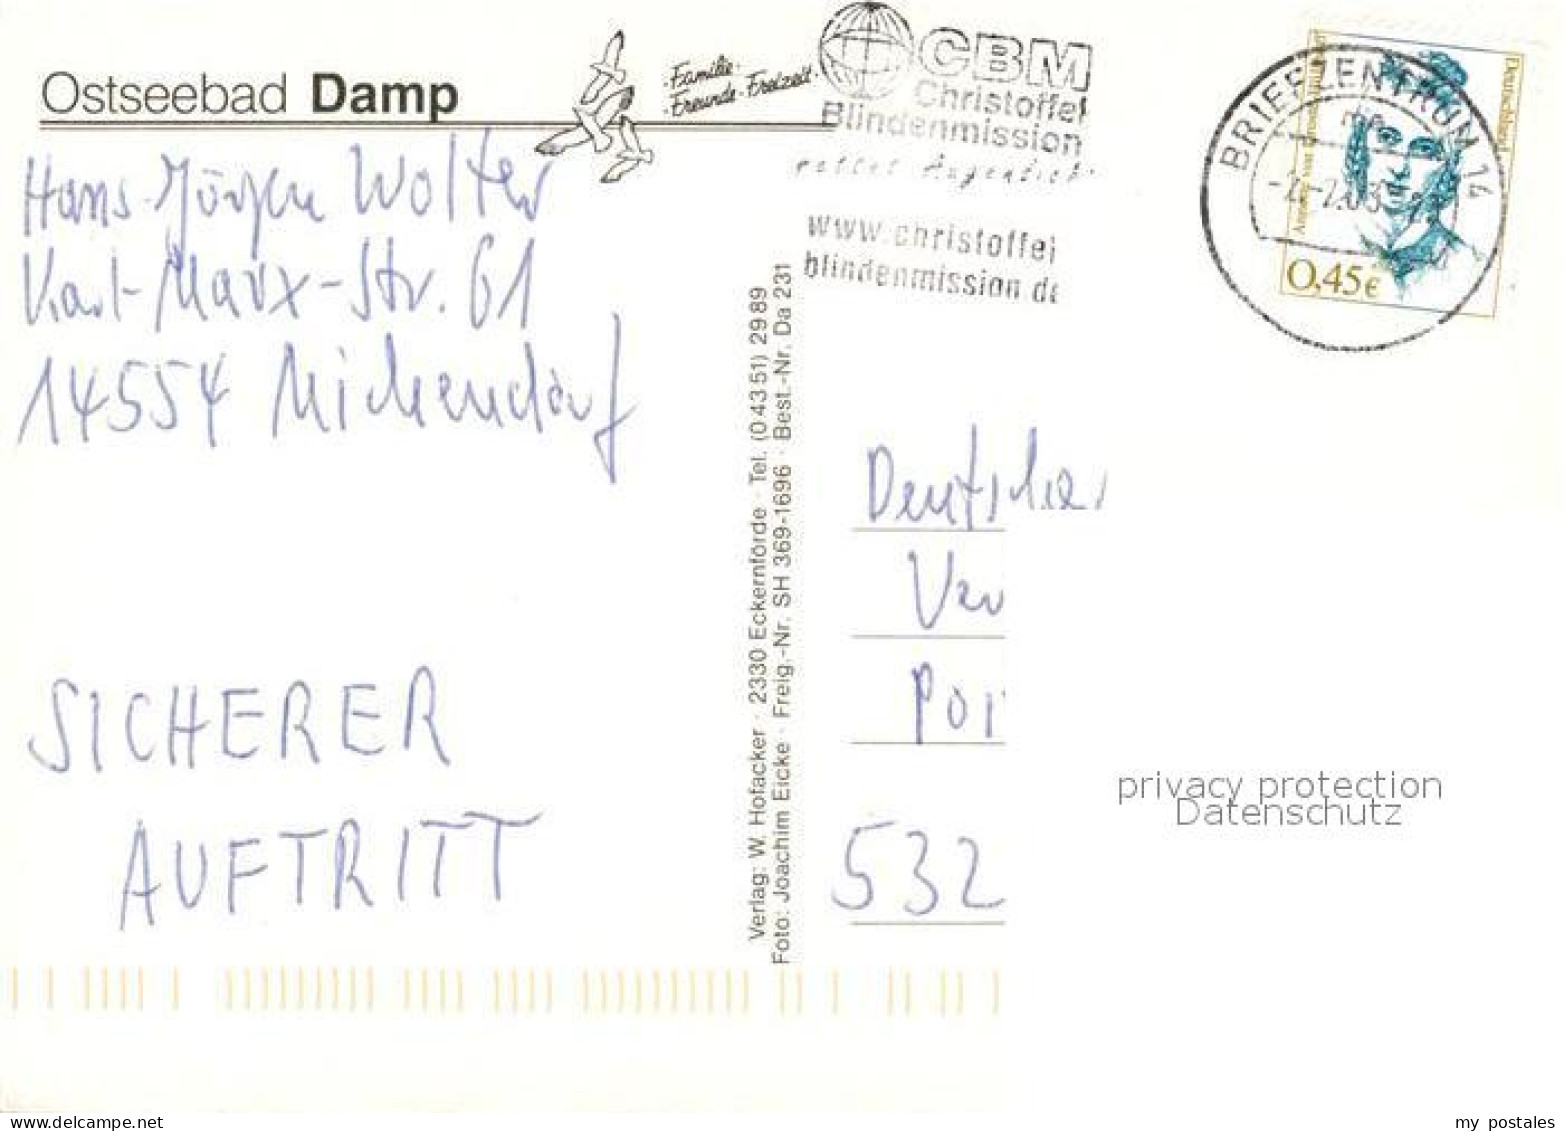 Ostseebad Damp
·Familie·
·Freunde·Freizeit·
CBM
Christoffel
Blindenmission
rettet Augenlicht
www.christoffel
blindenmission.de
BRIEFZENTRUM 14
Deutschland
0,45€
Hans-Jürgen Wolter
Karl-Marx-Str. 61
14554 Michendorf
SICHERER
AUFTRITT
Verlag: W. Hofacker · 2330 Eckernförde · Tel. (0 43 51) 29 89
Foto: Joachim Eicke · Freig.-Nr. SH 369-1696 · Best.-Nr. Da 231
Deutscher
Ver
532
privacy protection
Datenschutz
delcampe.net
my postales